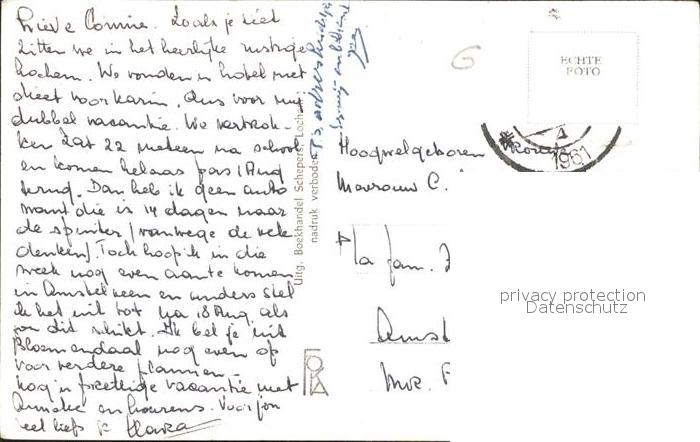 Lieve Connie. Zoals je ziet
zitten we in het heerlijke rustige
Lochem. We vonden 'n hotel met
dieet voor Karin, dus voor mij
dubbel vacantie. We vertrok-
ken Zat 22 meteen na school
en komen helaas pas 1 Aug
terug. Dan heb ik geen auto
want die is 14 dagen naar
de spuiter (vanwege de vele
deuken). Toch hoop ik in die
week nog even aan te komen
in Amstelveen en anders stel
ik het uit tot na 18 Aug. als
jou dit schikt. Ik bel je uit
Bloemendaal nog even op
voor verdere plannen.
Nog 'n prettige vacantie met
en Voor jou
veel liefs
Uitg. Boekhandel Schepers, Lochem
nadruk verboden
FOKA
ECHTE
FOTO
6
4
1961
Hoogwelgeboren
Mevrouw C.
1a fam.
Amst
privacy protection
Datenschutz